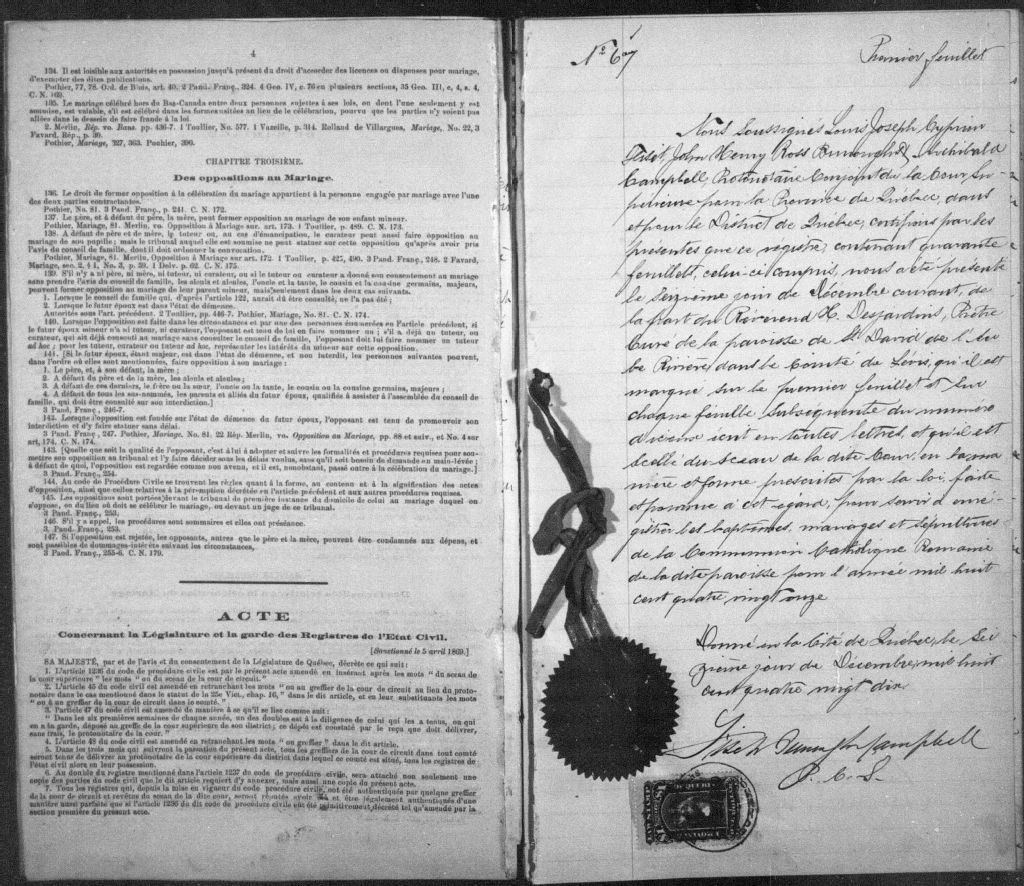 4
134. Il est loisible aux autorités en possession jusqu'à présent du droit d'accorder des licences ou dispenses pour mariage,
d'exempter des dites publications.
Pothier, 77, 78. Ord. de Blois, art. 40. 2 Pand. Franç., 324. 4 Geo. IV, c. 76 en plusieurs sections, 35 Geo. III, c, 4, s. 4,
C. N. 169.
135. Le mariage célébré hors du Bas-Canada entre deux personnes sujettes à ses lois, ou dont l'une seulement y est
soumise, est valable, s'il est célébré dans les formes usitées au lieu de la célébration, pourvu que les parties n'y soient pas
allées dans le dessein de faire fraude à la loi.
2. Merlin, Rép. vo. Bans. pp. 436-7. 1 Toullier, No. 577. 1 Vazeille, p. 314. Rolland de Villargues, Mariage, No. 22, 3
Favard. Rép., p. 39.
Pothier, Mariage, 327, 363. Pothier, 390.
CHAPITRE TROISIÈME.
Des oppositions au Mariage.
136. Le droit de former opposition à la célébration du mariage appartient à la personne engagée par mariage avec l'une
des deux parties contractantes.
Pothier, No. 81. 3 Pand. Franç., p. 241. C. N. 172.
137. Le père, et à défaut du père, la mère, peut former opposition au mariage de son enfant mineur.
Pothier, Mariage, 81. Merlin vo. Opposition à Mariage sur. art. 173. 1 Toullier, p. 489. C. N. 173.
138. A défaut de père et de mère, le tuteur ou, au cas d'émancipation, le curateur peut aussi faire opposition au
mariage de son pupille; mais le tribunal auquel elle est soumise ne peut statuer sur cette opposition qu'après avoir pris
l'avis du conseil de famille, dont il doit ordonner la convocation.
Pothier, Mariage, 81. Merlin, Opposition à Mariage sur art. 172. 1 Toullier, p. 425, 490. 3 Pand. Franç., 248. 2 Favard,
Mariage, sec. 2, § 1, No. 3, p. 59. 1 Delv. p. 62. C. N. 175.
139. S'il n'y a ni père, ni mère, ni tuteur, ni curateur, ou si le tuteur ou curateur a donné son consentement au mariage
sans prendre l'avis du conseil de famille, les aïeuls et aïeules, l'oncle et la tante, le cousin et la cousine germains, majeurs,
peuvent former opposition au mariage de leur parent mineur, mais seulement dans les deux cas suivants.
1. Lorsque le conseil de famille qui, d'après l'article 122, aurait dû être consulté, ne l'a pas été;
2. Lorsque le futur époux est dans l'état de démence.
Autorités sous l'art. précédent. 2 Toullier, pp. 446-7. Pothier, Mariage, No. 81. C. N. 174.
140. Lorsque l'opposition est faite dans les circonstances et par une des personnes énumérées en l'article précédent, si
le futur époux mineur n'a ni tuteur, ni curateur, l'opposant est tenu de lui en faire nommer un; s'il a déjà un tuteur, ou
curateur, qui ait déjà consenti au mariage sans consulter le conseil de famille, l'opposant doit lui faire nommer un tuteur
ad hoc; pour les tuteur, curateur ou tuteur ad hoc, représenter les intérêts du mineur sur cette opposition.
141. [Si le futur époux, étant majeur, est dans l'état de démence, et non interdit, les personnes suivantes peuvent,
dans l'ordre où elles sont mentionnées, faire opposition à son mariage:
1. Le père, et, à son défaut, la mère;
2. A défaut du père et de la mère, les aïeuls et aïeules;
3. A défaut de ces derniers, le frère ou la sœur, l'oncle ou la tante, le cousin ou la cousine germains, majeurs;
4. A défaut de tous les sus-nommés, les parents et alliés du futur époux, qualifiés à assister à l'assemblée du conseil de
famille, qui doit être consulté sur son interdiction.]
3 Pand. Franç., 246-7.
142. Lorsque l'opposition est fondée sur l'état de démence du futur époux, l'opposant est tenu de promouvoir son
interdiction et d'y faire statuer sans délai.
3 Pand. Franç., 247. Pothier, Mariage, No. 81. 22 Rép. Merlin, vo. Opposition au Mariage, pp. 88 et suiv., et No. 4 sur
art, 174. C. N. 174.
143. [Quelle que soit la qualité de l'opposant, c'est à lui à adopter et suivre les formalités et procédures requises pour sou-
mettre son opposition au tribunal et l'y faire décider sous les délais voulus, sans qu'il soit besoin de demande en main-levée;
à défaut de quoi, l'opposition est regardée comme non avenue, et il est, nonobstant, passé outre à la célébration du mariage.]
3 Pand. Franç., 254.
144. Au code de Procédure Civile se trouvent les règles quant à la forme, au contenu et à la signification des actes
d'opposition, ainsi que celles relatives à la péremption décrétée en l'article précédent et aux autres procédures requises.
145. Les oppositions sont portées devant le tribunal de première instance du domicile de celui au mariage duquel on
s'oppose, ou du lieu où doit se célébrer le mariage, ou devant un juge de ce tribunal.
3 Pand. Franç., 253.
146. S'il y a appel, les procédures sont sommaires et elles ont préséance.
3. Pand. Franç., 253.
147. Si l'opposition est rejetée, les opposants, autres que le père et la mère, peuvent être condamnés aux dépens, et
sont passibles de dommages-intérêts suivant les circonstances,
3 Pand. Franç., 255-6. C. N. 179.
ACTE
Concernant la Législature et la garde des Registres de l'Etat Civil.
[Sanctionné le 5 avril 1869.]
SA MAJESTÉ, par et de l'avis et du consentement de la Législature de Québec, décrète ce qui suit:
1. L'article 1236 du code de procédure civile est par le présent acte amendé en insérant après les mots "du sceau de
la cour supérieure" les mots "ou du sceau de la cour de circuit."
2. L'article 45 du code civil est amendé en retranchant les mots "ou au greffier de la cour de circuit au lieu du proto-
notaire dans le cas mentionné dans le statut de la 25e Vict., chap. 16," dans le dit article, et en leur substituant les mots
"ou à un greffier de la cour de circuit dans le comté."
3. L'article 47 du code civil est amendé de manière à ce qu'il se lise comme suit:
"Dans les six premières semaines de chaque année, un des doubles est à la diligence de celui qui les a tenus, ou qui
en a la garde, déposé au greffe de la cour supérieure de son district; ce dépôt est constaté par le reçu que doit délivrer,
sans frais, le protonotaire de la cour."
4. L'article 48 du code civil est amendé en retranchant les mots "ou greffier" dans le dit article.
5. Dans les trois mois qui suivront la passation du présent acte, tous les greffiers de la cour de circuit dans tout comté
seront tenus de délivrer au protonotaire de la cour supérieure du district dans lequel ce comté est situé, tous les registres de
l'état civil alors en leur possession.
6. Au double du registre mentionné dans l'article 1237 du code de procédure civile, sera attaché non seulement une
copie des parties du code civil que le dit article requiert d'y annexer, mais aussi une copie du présent acte.
7. Tous les registres qui, depuis la mise en vigueur du code procédure civile, ont été authentiqués par quelque greffier
de la cour de circuit et revêtus du sceau de la dite cour, seront réputés avoir été et être légalement authentiqués d'une
manière aussi parfaite que si l'article 1236 du dit code de procédure civile eut été primitivement décrété tel qu'amendé par la
section première du présent acte.
Premier feuillet
Nous Soussignés Louis Joseph Cyprien
Fiset, John Henry Ross Burroughs & Archibald
Campbell, Protonotaire Conjoint de la Cour Su-
périeure pour la Province de Québec, dans
et pour le District de Québec, certifions par les
présentes que ce registre, contenant quarante
feuillets, celui-ci compris, nous a été présenté
le Seizième jour de Décembre courant, de
la part du Révérend H. Desjardins, Prêtre
Curé de la paroisse de St David de l'Au
be Rivière, dans le Comté de Levis, qu'il est
marqué sur le premier feuillet et sur
chaque feuillet subséquent du numéro
d'icelui écrit en toutes lettres, et qu'il est
scellé du sceau de la dite Cour, en la ma
nière et forme prescrites par la loi, faite
et pourvue à cet égard, pour servir à enre-
gistrer les baptêmes, mariages et sépultures
de la Communion Catholique Romaine
de la dite paroisse pour l'année mil huit
cent quatre vingt onze
Donné en la Cité de Québec, le Sei
zième jour de Décembre, mil huit
cent quatre vingt dix.
Fiset Burroughs Campbell
P. C. S.